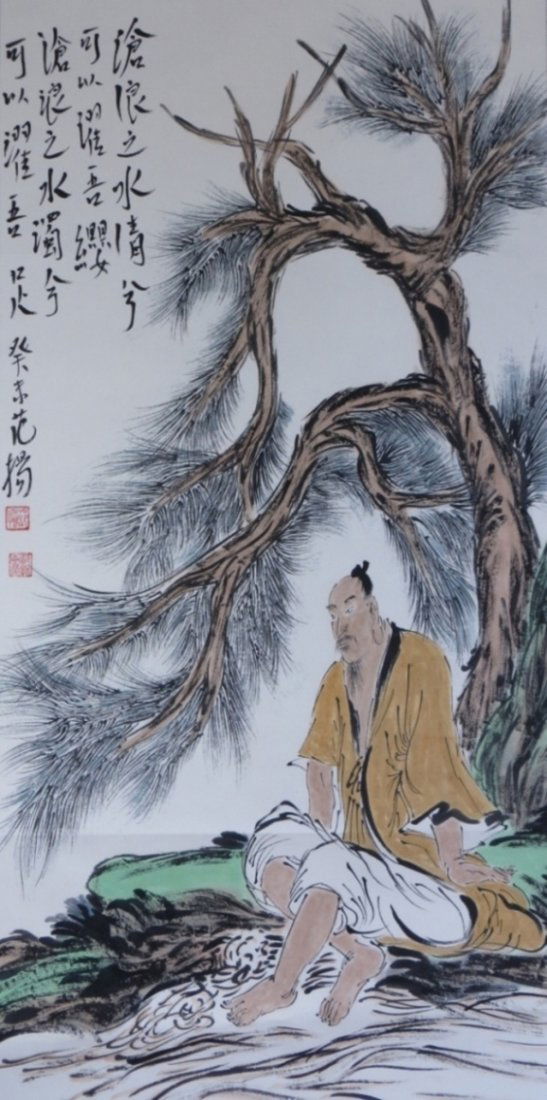 滄浪之水清兮
可以濯吾纓
滄浪之水濁兮
可以濯吾足 癸未范揚